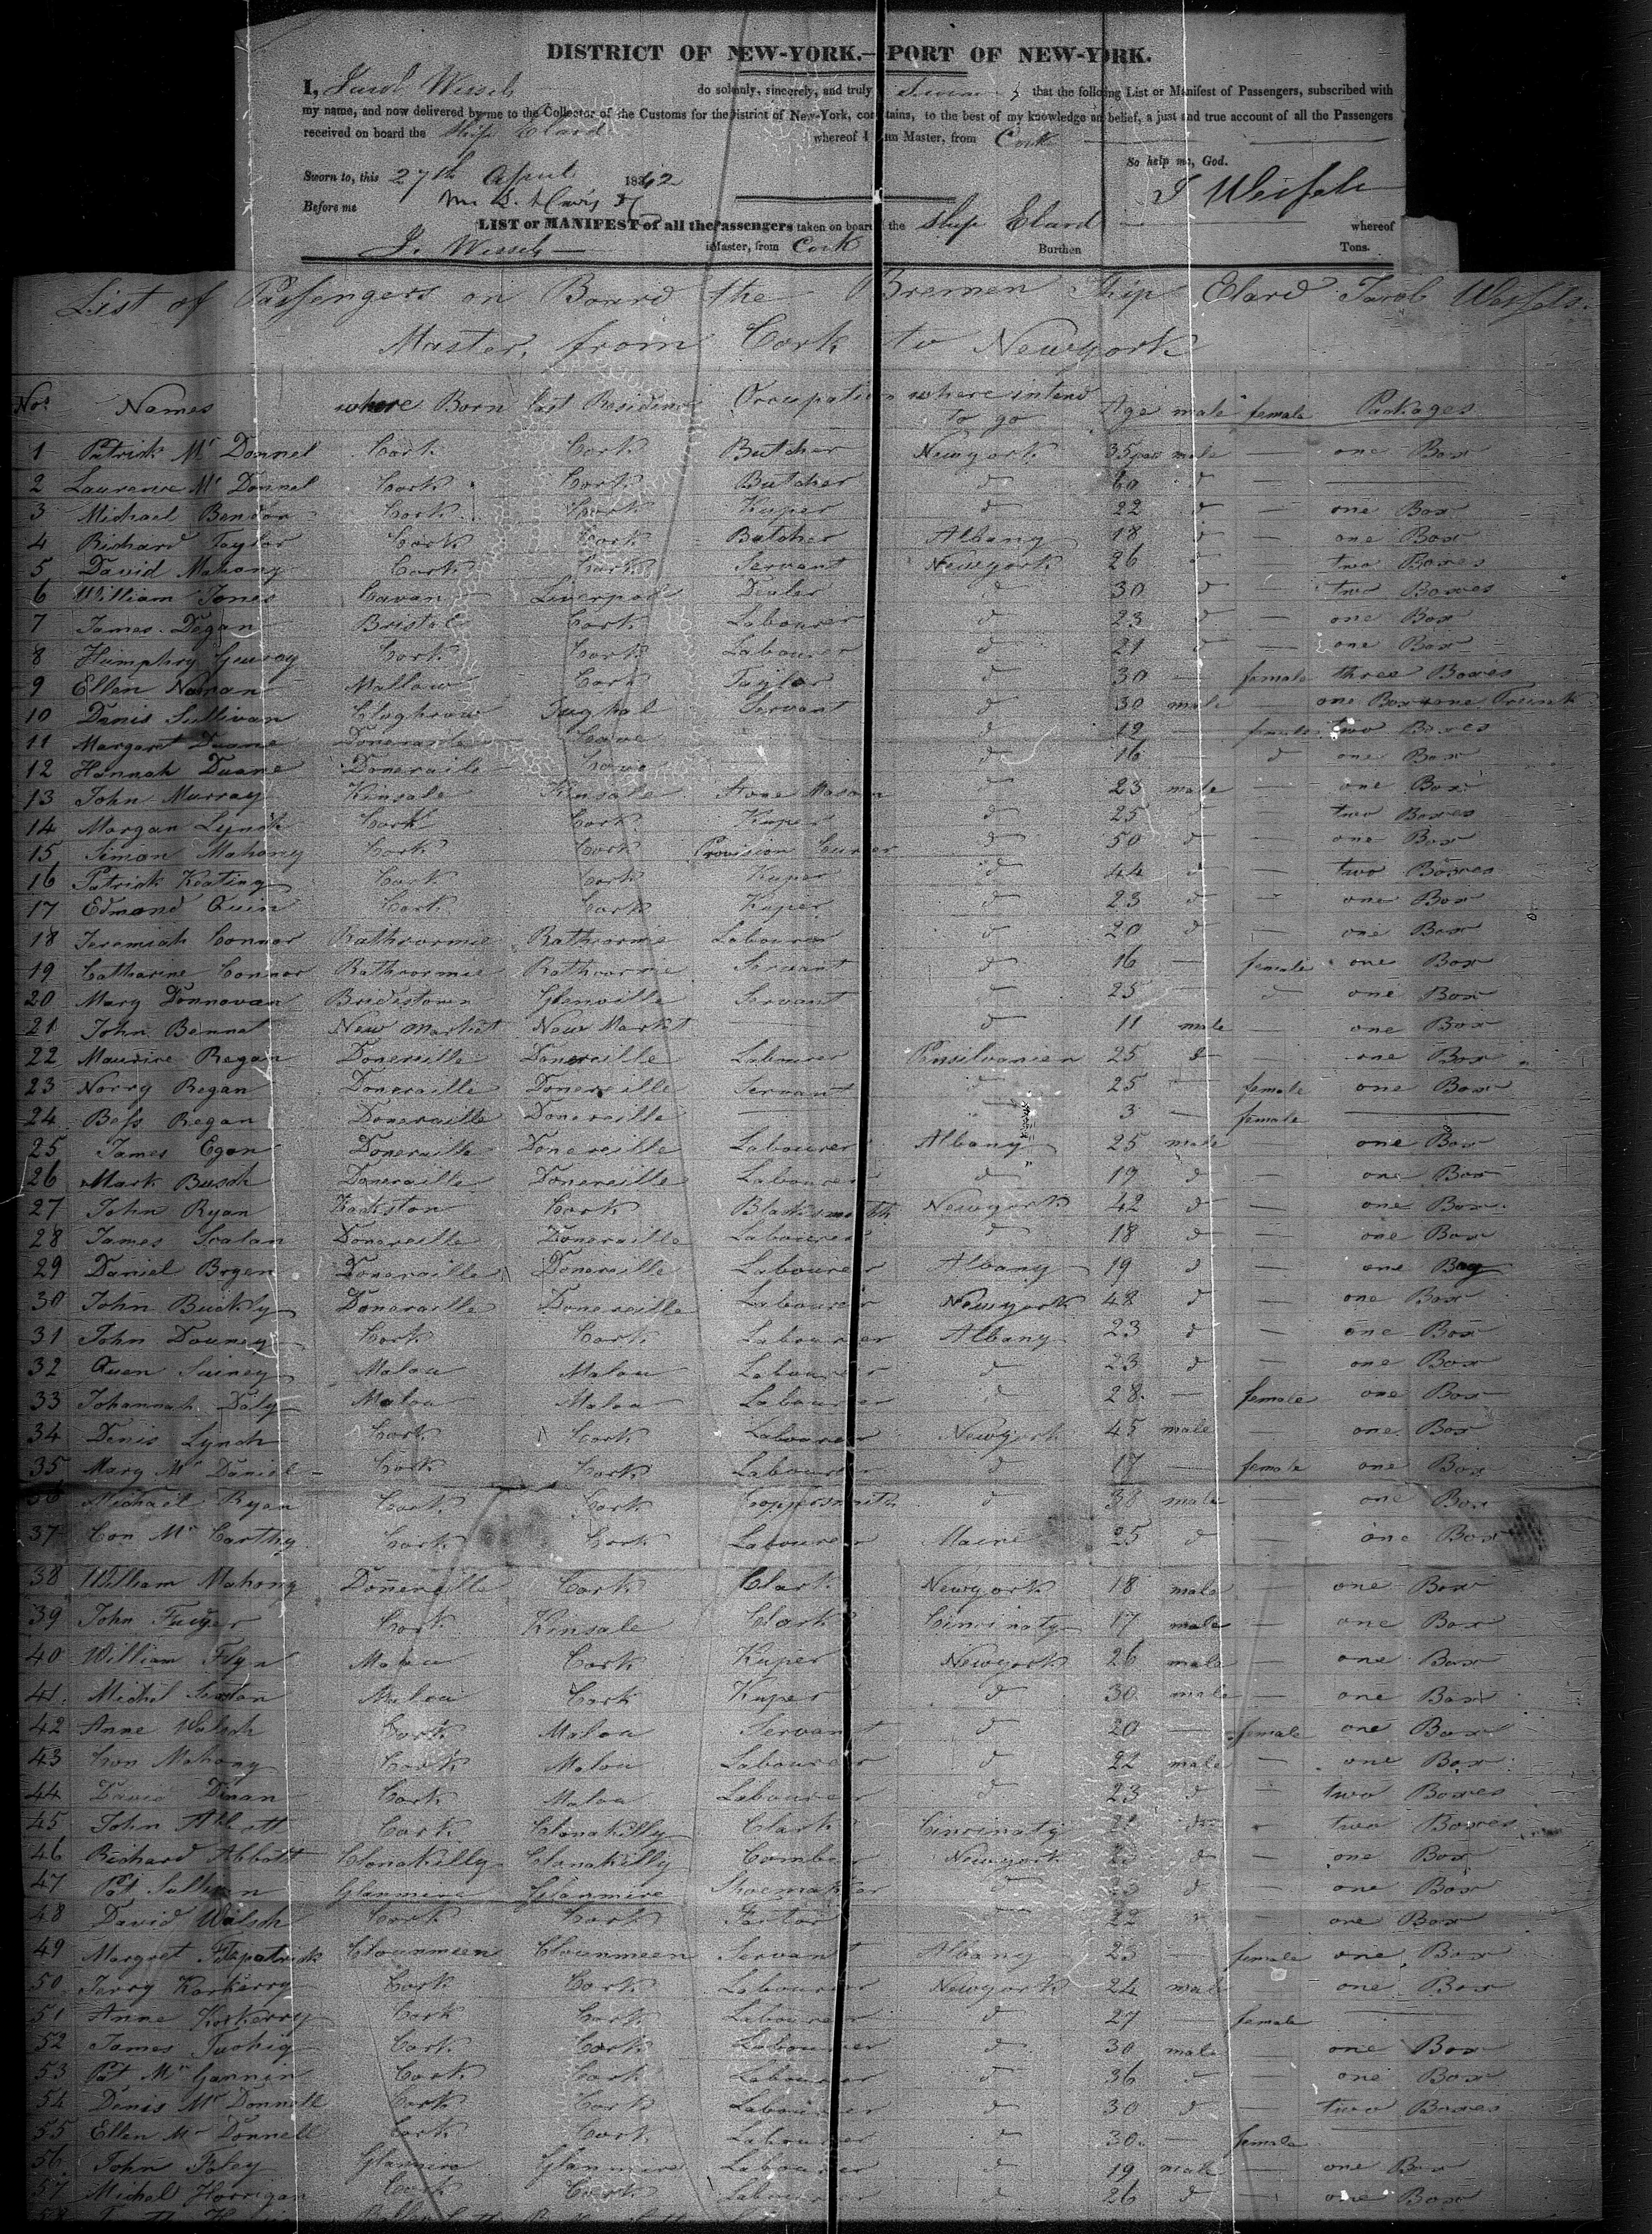 DISTRICT OF NEW-YORK.—PORT OF NEW-YORK.
I, Jacob Wessels do solemnly, sincerely, and truly that the following List or Manifest of Passengers, subscribed with
my name, and now delivered by me to the Collector of the Customs for the District of New-York, contains, to the best of my knowledge and belief, a just and true account of all the Passengers
received on board the Ship Elard whereof I am Master, from Cork
So help me, God.
Sworn to, this 27th April 1842 J Wessels
Before me
LIST or MANIFEST of all the Passengers taken on board the Ship Elard whereof
J. Wessels is Master, from Cork Burthen Tons.
List of Passengers on Board the Bremen Ship Elard Jacob Wessels
Master, from Cork to Newyork
Nos Names where Born last Residence Occupation where intend to go Age male female Packages
1 Patrick Mc Donnel Cork Cork Butcher Newyork 35 years male — one Box
2 Laurence Mc Donnel Cork Cork Butcher d 60 d —
3 Michael Cork Cork Kuper d 22 d — one Box
4 Richard Taylor Cork Cork Butcher Albany 18 d — one Box
5 David Mahony Cork Cork Servant Newyork 26 d — two Boxes
6 William Jones Cavan Liverpool Dealer d 30 d — two Boxes
7 James Degan Bristol Cork Labourer d 23 d — one Box
8 Humphry Cork Cork Labourer d 21 d — one Box
9 Ellen Noonan Mallow Cork Taylor d 30 — female three Boxes
10 Denis Sullivan Cloghrow Jughal Servant d 30 male one Box & one Trunk
11 Margaret Duane Doneraile d 19 — female two Boxes
12 Hannah Duane Doneraile d 16 — d one Box
13 John Murray Kinsale Kinsale Stone Mason d 23 male — one Box
14 Morgan Lynch Cork Cork Kuper d 25 — two Boxes
15 Simon Mahony Cork Cork Provision Curer d 50 d — one Box
16 Patrick Keating Cork Cork Kuper d 44 d — two Boxes
17 Edmond Quin Cork Cork Kuper d 23 d — one Box
18 Jeremiah Connor Rathcormie Rathcormie Labourer d 20 d — one Box
19 Catharine Connor Rathcormie Rathcormie Servant d 16 — female one Box
20 Mary Donnovan Bridestown Glenville Servant d 25 — d one Box
21 John Bennet New Market New Market — d 11 male — one Box
22 Maurice Regan Doneraille Doneraille Labourer Pensilvanien 25 d — one Box
23 Norry Regan Doneraille Doneraille Servant d 25 — female one Box
24 Bess Regan Doneraille Doneraille — 3 — female —
25 James Egan Doneraille Doneraille Labourer Albany 25 male one Box
26 Mark Busch Doneraille Doneraille Labourer d 19 d one Box
27 John Ryan Cork Blacksmith Newyork 42 d — one Box
28 James Scalan Doneraille Doneraille Labourer d 18 d — one Box
29 Daniel Bryen Doneraille Doneraille Labourer Albany 19 d — one Bag
30 John Buckly Doneraille Doneraille Labourer Newyork 48 d — one Box
31 John Douney Cork Cork Labourer Albany 23 d — one Box
32 Quen Suiney Malou Malou Labourer d 23 d — one Box
33 Johannah Daly Malou Malou Labourer d 28 — female one Box
34 Denis Lynch Cork Cork Labourer Newyork 45 male — one Box
35 Mary Mc Daniel Cork Cork Labourer d 17 — female one Box
36 Michael Ryan Cork Cork Coppersmith d 38 male — one Box
37 Con Mc Carthy Cork Cork Labourer Maine 25 d — one Box
38 William Mahony Doneraille Cork Clark Newyork 18 male — one Box
39 John Fudger Cork Kinsale Clark Cincinaty 17 male — one Box
40 William Flyn Malou Cork Kuper Newyork 26 male — one Box
41 Michel Sexton Malou Cork Kuper d 30 male — one Box
42 Anne Walsch Cork Malou Servant d 20 — female one Box
43 Con Mahony Cork Malou Labourer d 22 male — one Box
44 David Dinan Cork Malou Labourer d 23 d — two Boxes
45 John Abbott Cork Clonakilly Clark Cincinaty 21 do two Boxes
46 Richard Abbott Clonakilly Clonakilly Comber Newyork d — one Box
47 Pat Sullivan Glanmire Glanmire Shoemaker d 23 d — one Box
48 David Walsch Cork Cork Factor 22 one Box
49 Margret Fitzpatrick Clounmeen Clounmeen Servant Albany 23 — female one Box
50 Jerry Korkerry Cork Cork Labourer Newyork 24 male one Box
51 Anne Korkerry Cork Cork Labourer d 27 — female —
52 James Tuohig Cork Cork Labourer d 30 male — one Box
53 Pat Mc Gannin Cork Cork Labourer d 36 d — one Box
54 Denis Mc Donnell Cork Cork Labourer d 30 d — two Boxes
55 Ellen Mc Donnell Cork Cork Labourer d 30 — female
56 John Foley Glanmire Glanmire Labourer d 19 male — one Box
57 Michel Horrigan Cork Cork Labourer d 26 d — one Box